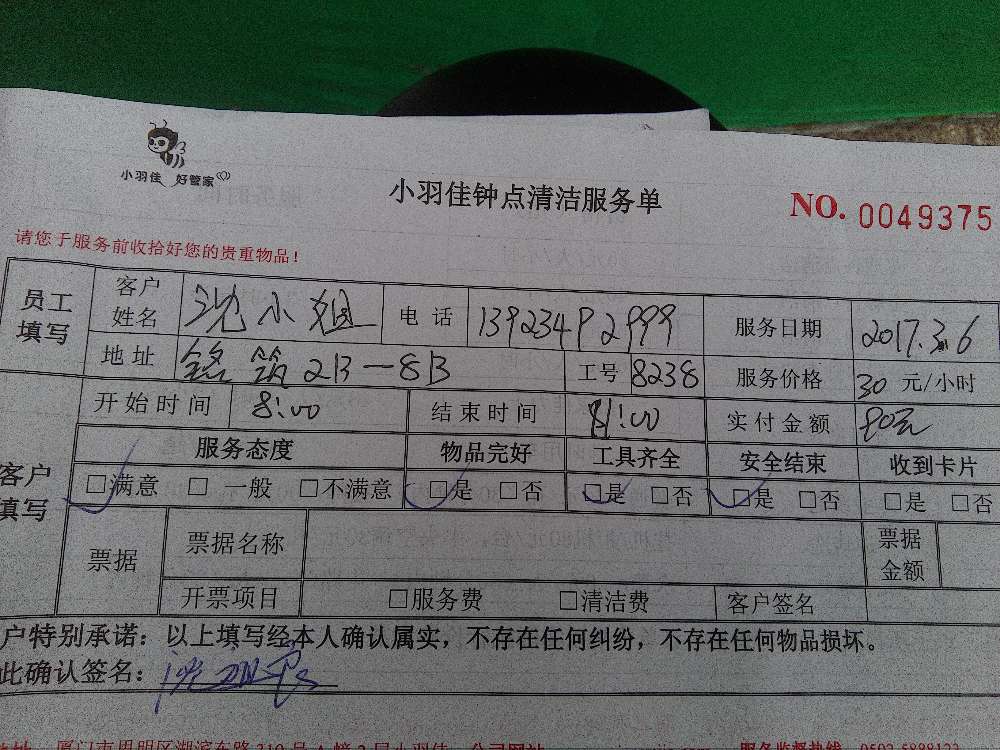 小羽佳 好管家
小羽佳钟点清洁服务单
NO. 0049375
请您于服务前收拾好您的贵重物品！
员工填写 客户姓名 沈小姐 电话 13923492999 服务日期 2017.3.6
地址 铭筑2B-8B 工号 8238 服务价格 30 元/小时
开始时间 8:00 结束时间 11:00 实付金额 90元
客户填写 服务态度 物品完好 工具齐全 安全结束 收到卡片
□满意 □一般 □不满意 □是 □否 □是 □否 □是 □否 □是 □否
票据 票据名称 票据金额
开票项目 □服务费 □清洁费 客户签名
户特别承诺：以上填写经本人确认属实，不存在任何纠纷，不存在任何物品损坏。
此确认签名：
厦门市思明区湖滨东路319号A幢3层小羽佳 公司网站 服务监督热线